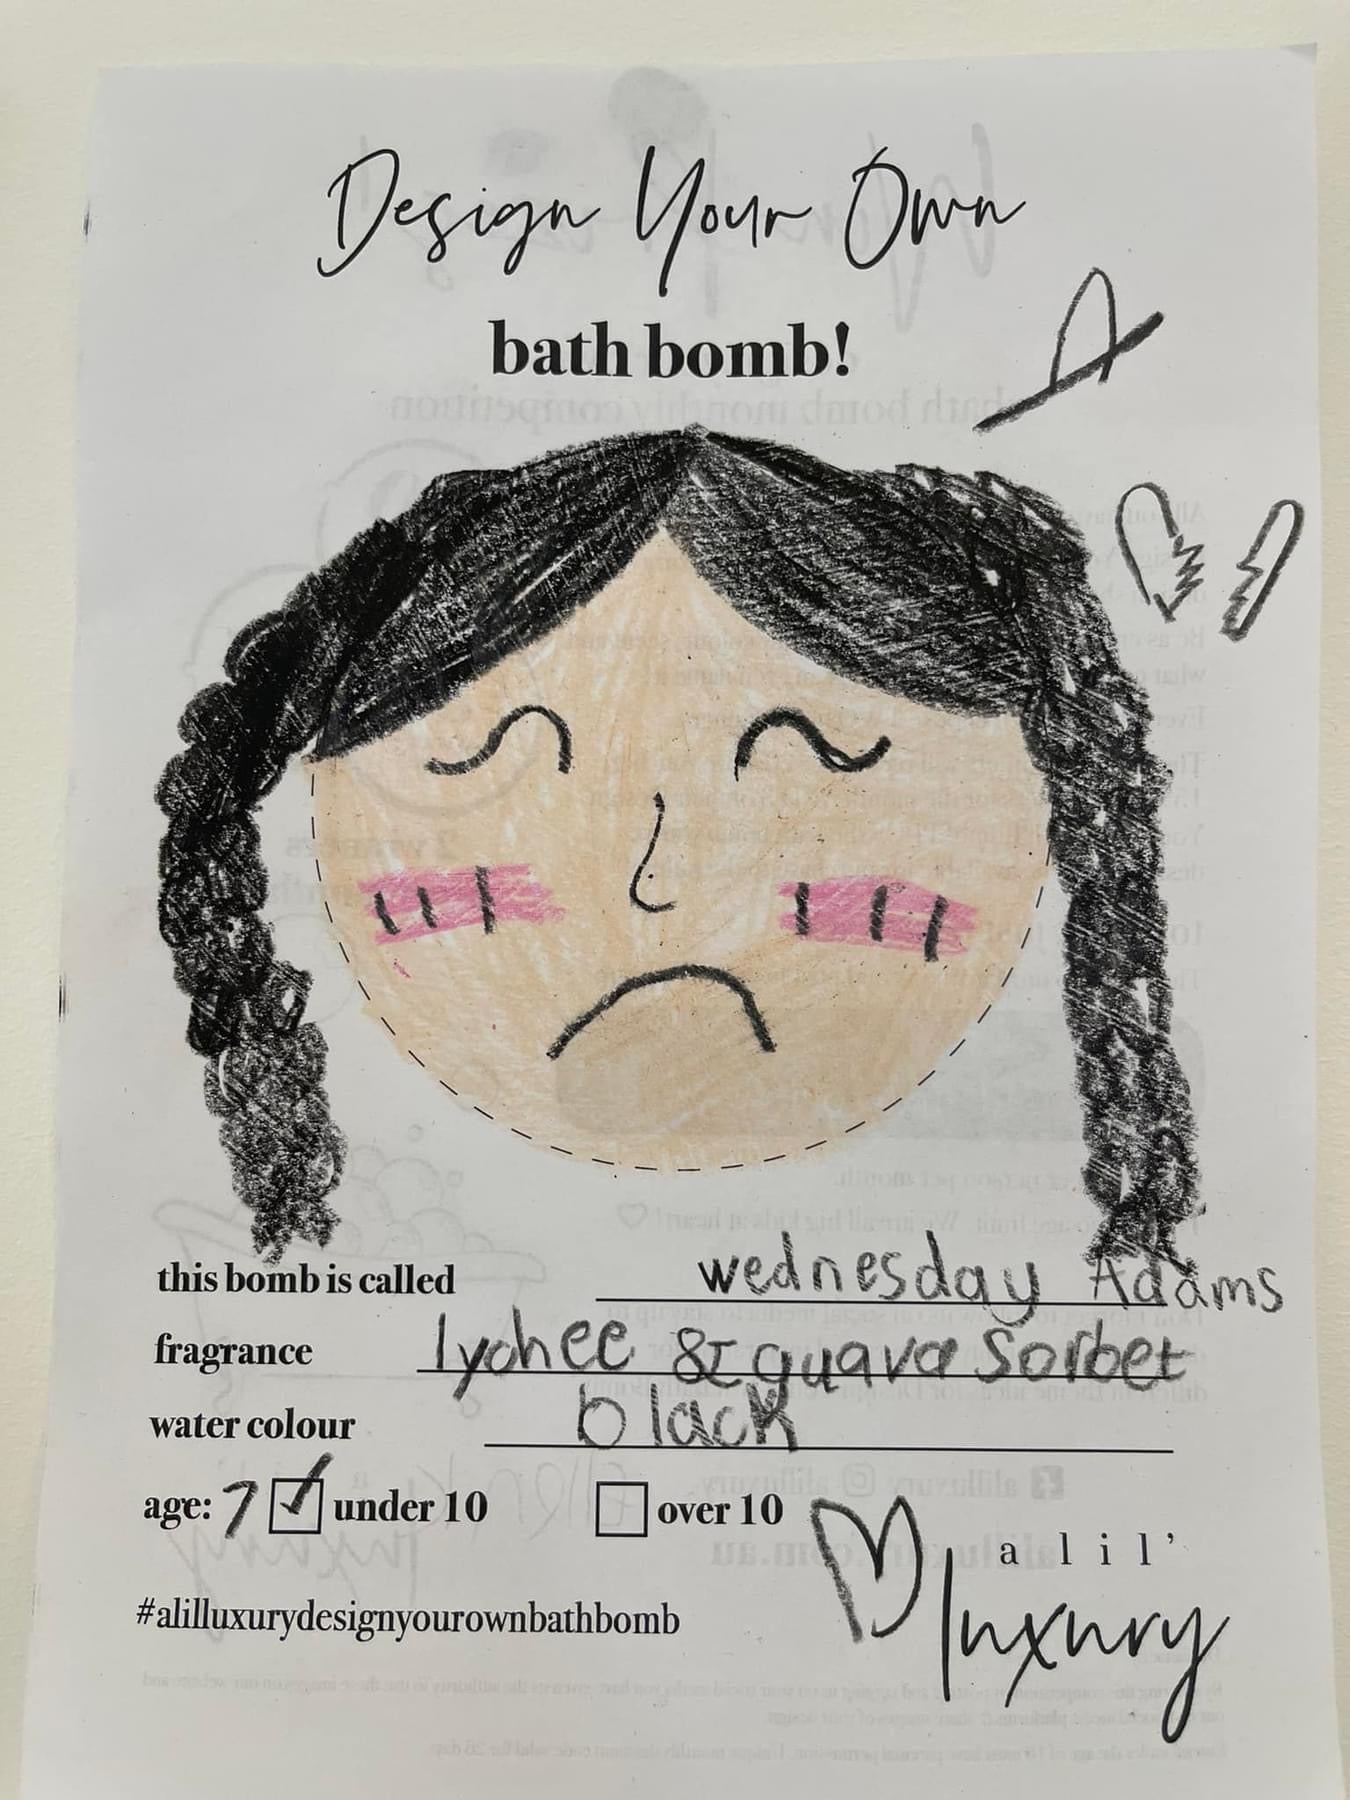 Design Your Own
bath bomb!
this bomb is called wednesday Adams
fragrance lychee & guava sorbet
water colour black
age: 7 ✓ under 10 over 10
a lil'
luxury
#alilluxurydesignyourownbathbomb